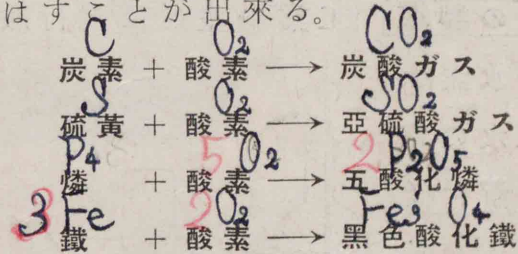 はすことが出來る。
C O2 CO2
炭素 + 酸素 → 炭酸ガス
S O2 SO2
硫黃 + 酸素 → 亞硫酸ガス
P4 5 O2 2 P2O5
燐 + 酸素 → 五酸化燐
3 Fe 2 O2 Fe3 O4
鐵 + 酸素 → 黑色酸化鐵